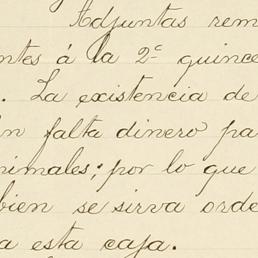 Adjuntas rem
ntes á la 2ª quince
. La existencia de
n falta dinero pa
nimales; por lo que
bien se sirva orde
a esta caja.